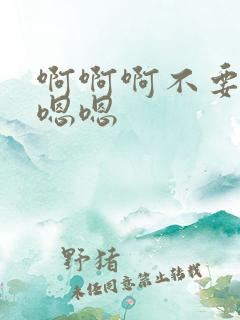 啊啊啊不要
嗯嗯
野猪
未经同意禁止转载